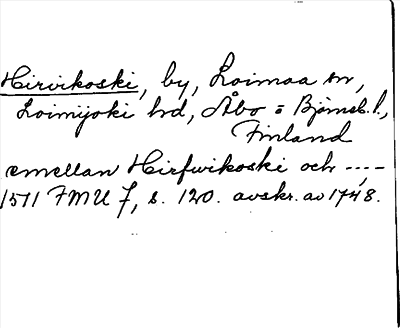 Hirvikoski, by, Loimaa sn,
Loimijoki hd, Åbo o Björneb. l.,
Finland
emellan Hirfwikoski och ----
1511 FMU 7, s. 120. avskr. av 1748.